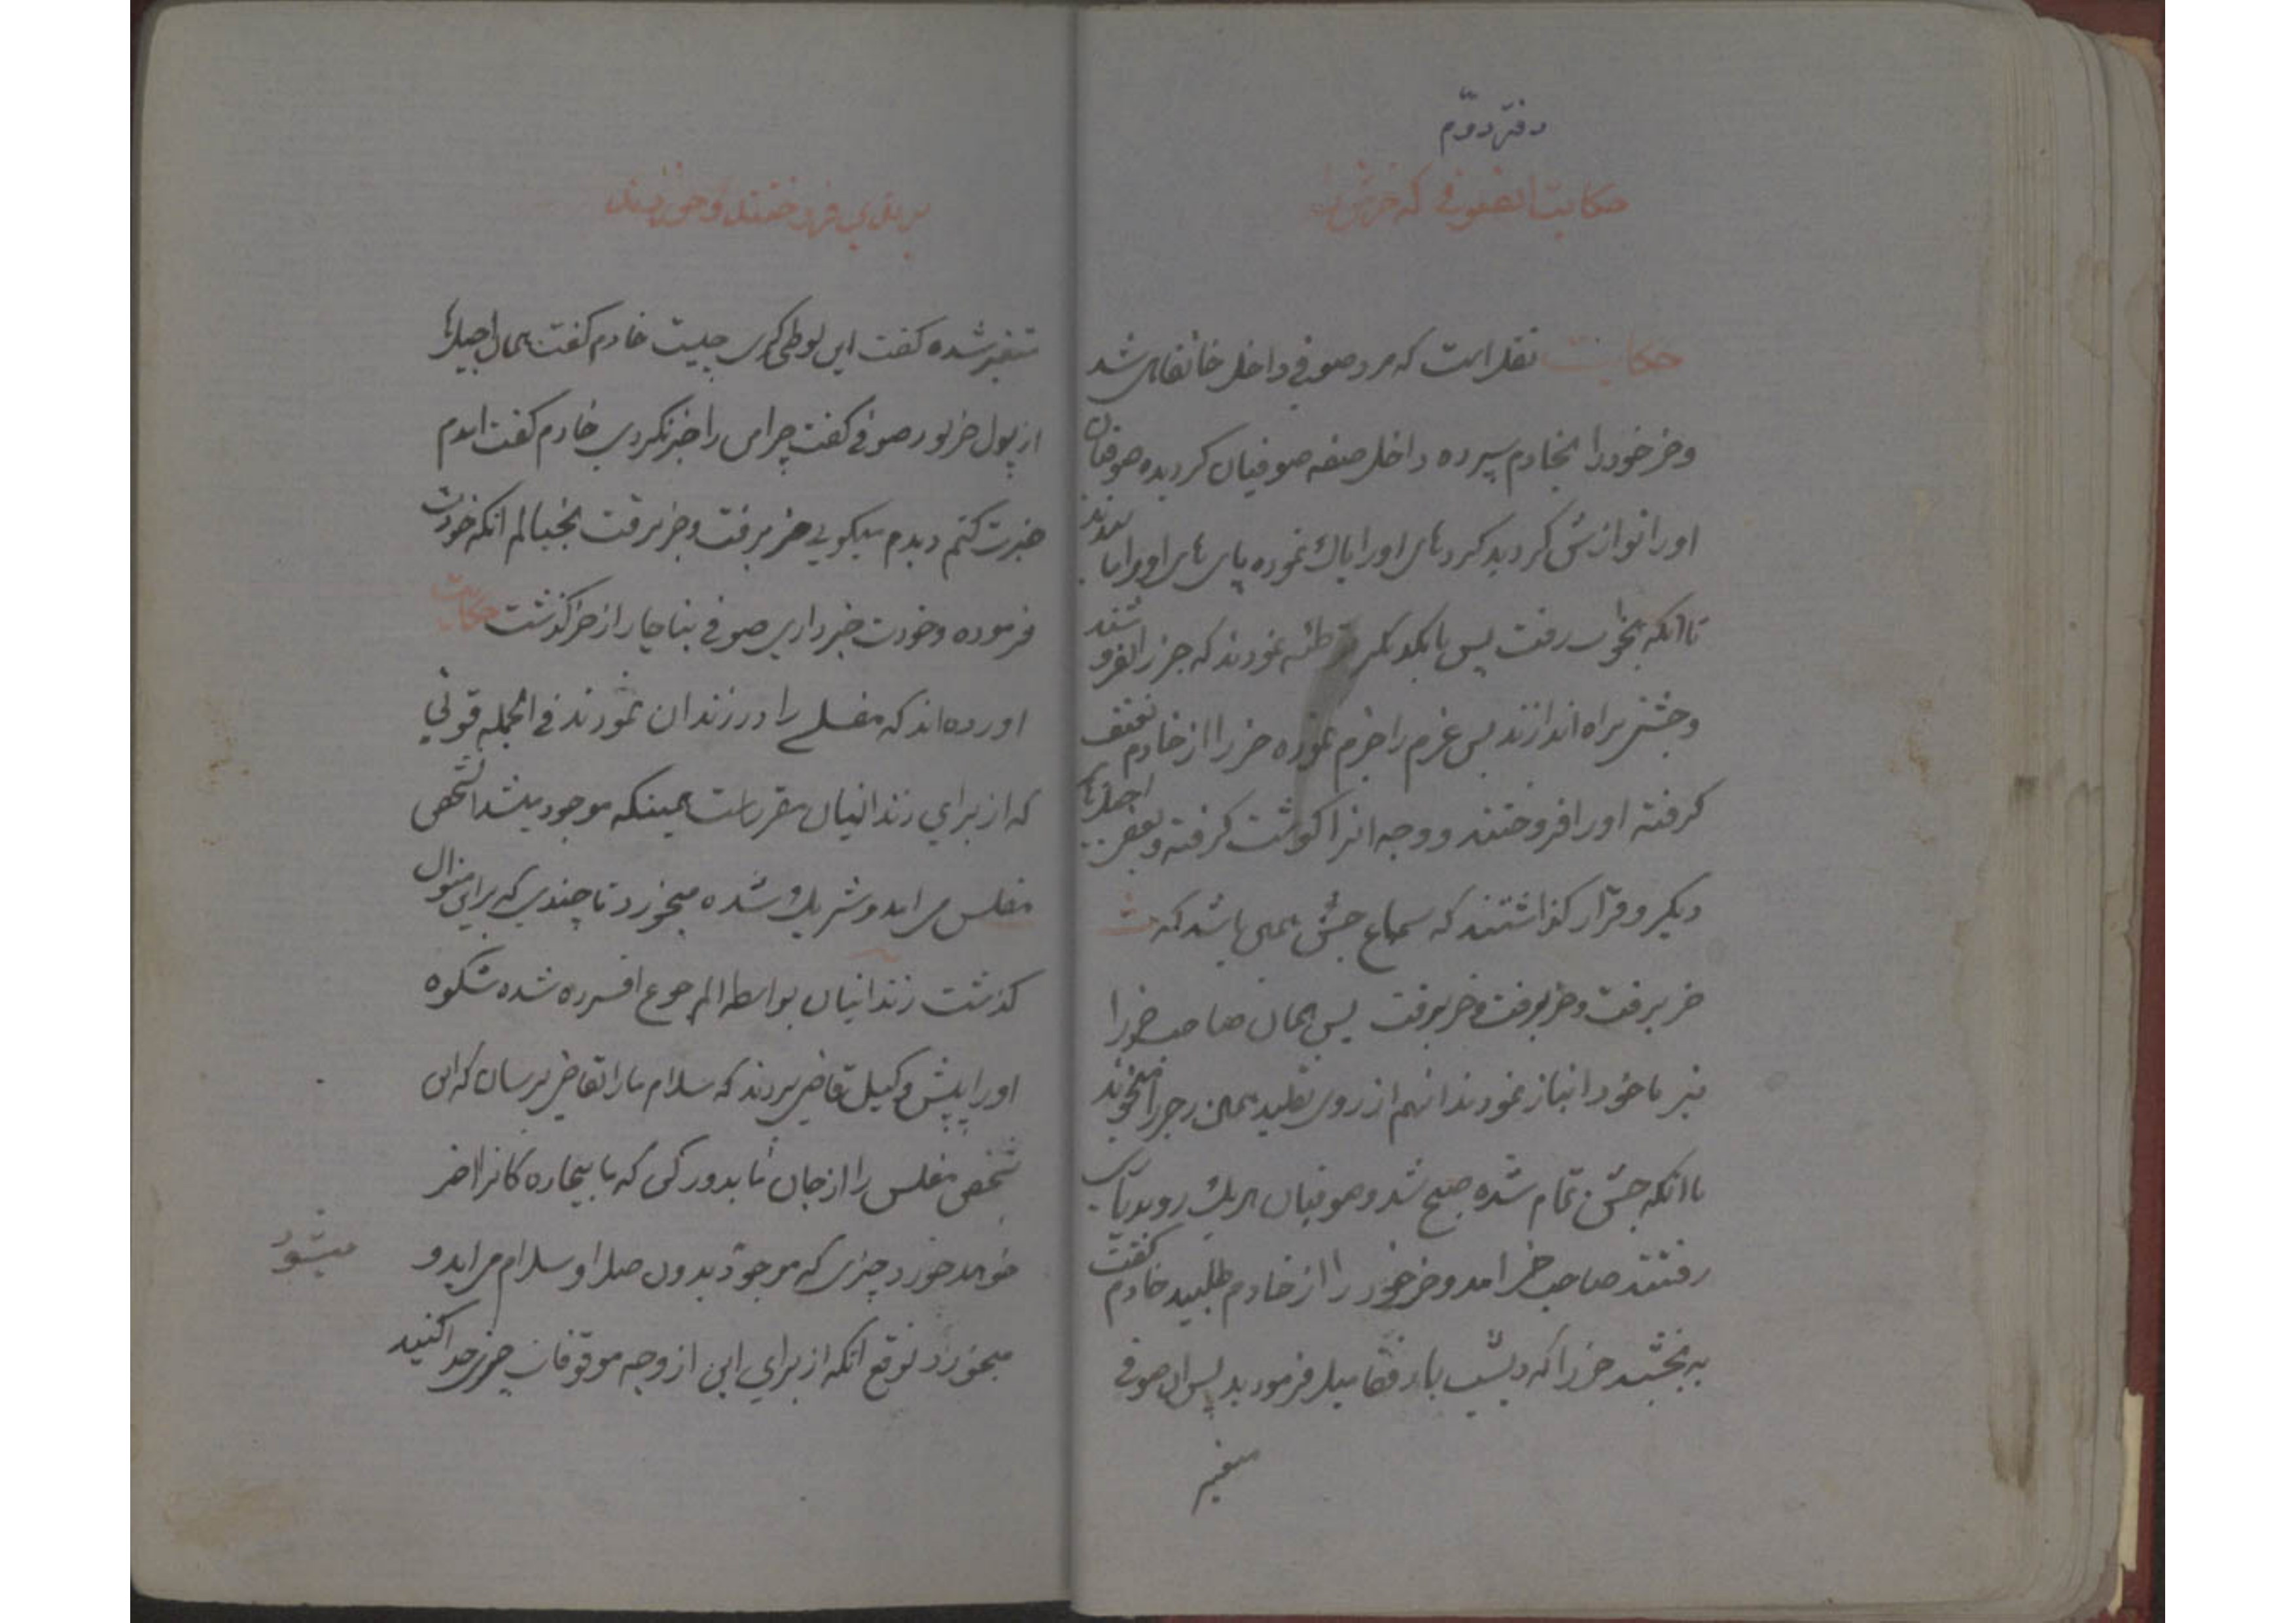 دفتر دوّم
حکایت انصوفی که خرش را
حکایت نقل است که مرد صوفی داخل خانقاهی شد
و خر خود را بخادم سپرده داخل صفه صوفیان کردیده صوفیان
او را نوازش کردید کردهای او را پاک نموده پای های او را
تا انکه بخواب رفت پس با یکدیکر توطئه نمودند که خر را بفروشند
و جشنی براه اندازند پس عزم را جزم نموده خر را از خادم
کرفته او را فروختند و وجه انرا کوشت کرفته و بعضی
دیکر و قرار کذاشتند که سماع جشن همین باشد که
خر برفت و خر برفت و خر برفت پس همان صاحب خر را
نیز با خود انباز نمودند انهم از روی تقلید همین رجز را میخواند
تا انکه جشن تمام شده صبح شد و صوفیان هر یک رو بدیاری
رفتند صاحب خر امد و خر خود را از خادم طلبید خادم کفت
به بخشید خر را که دیشب با رفقا میل فرمودید پس ان صوفی
متغیر
بریدی فروختند و خوردند
متغیر شده کفت این لوطی کری چیست خادم کفت همان اجیلها
از پول خر بود صوفی کفت چرا من را خبر نکردی خادم کفت امدم
خبرت کنم دیدم میکویی خر برفت و خر برفت بخیالم انکه خودت
فرموده و خودت خبر داری صوفی بناچار از خر کذشت حکایت
اورده اند که مفلسی را در زندان نمودند فی الجمله قوتی
که از برای زندانیان مقر است همینکه موجود میشد انشخص
مفلس می امد و شریک شده میخورد تا چندی که بر این منوال
کذشت زندانیان بواسطه الم جوع افسرده شده شکوه
او را پیش وکیل قاضی بردند که سلام ما را بقاضی برسان که این
شخص مفلس را از جان ما بدور کن که ما بیچاره کانرا اخر
خواهد خورد چیزی که موجود میشود بدون صلا و سلام می اید و
میخورد توقع انکه از برای این از وجه موقوفات چیزی جدا کنید